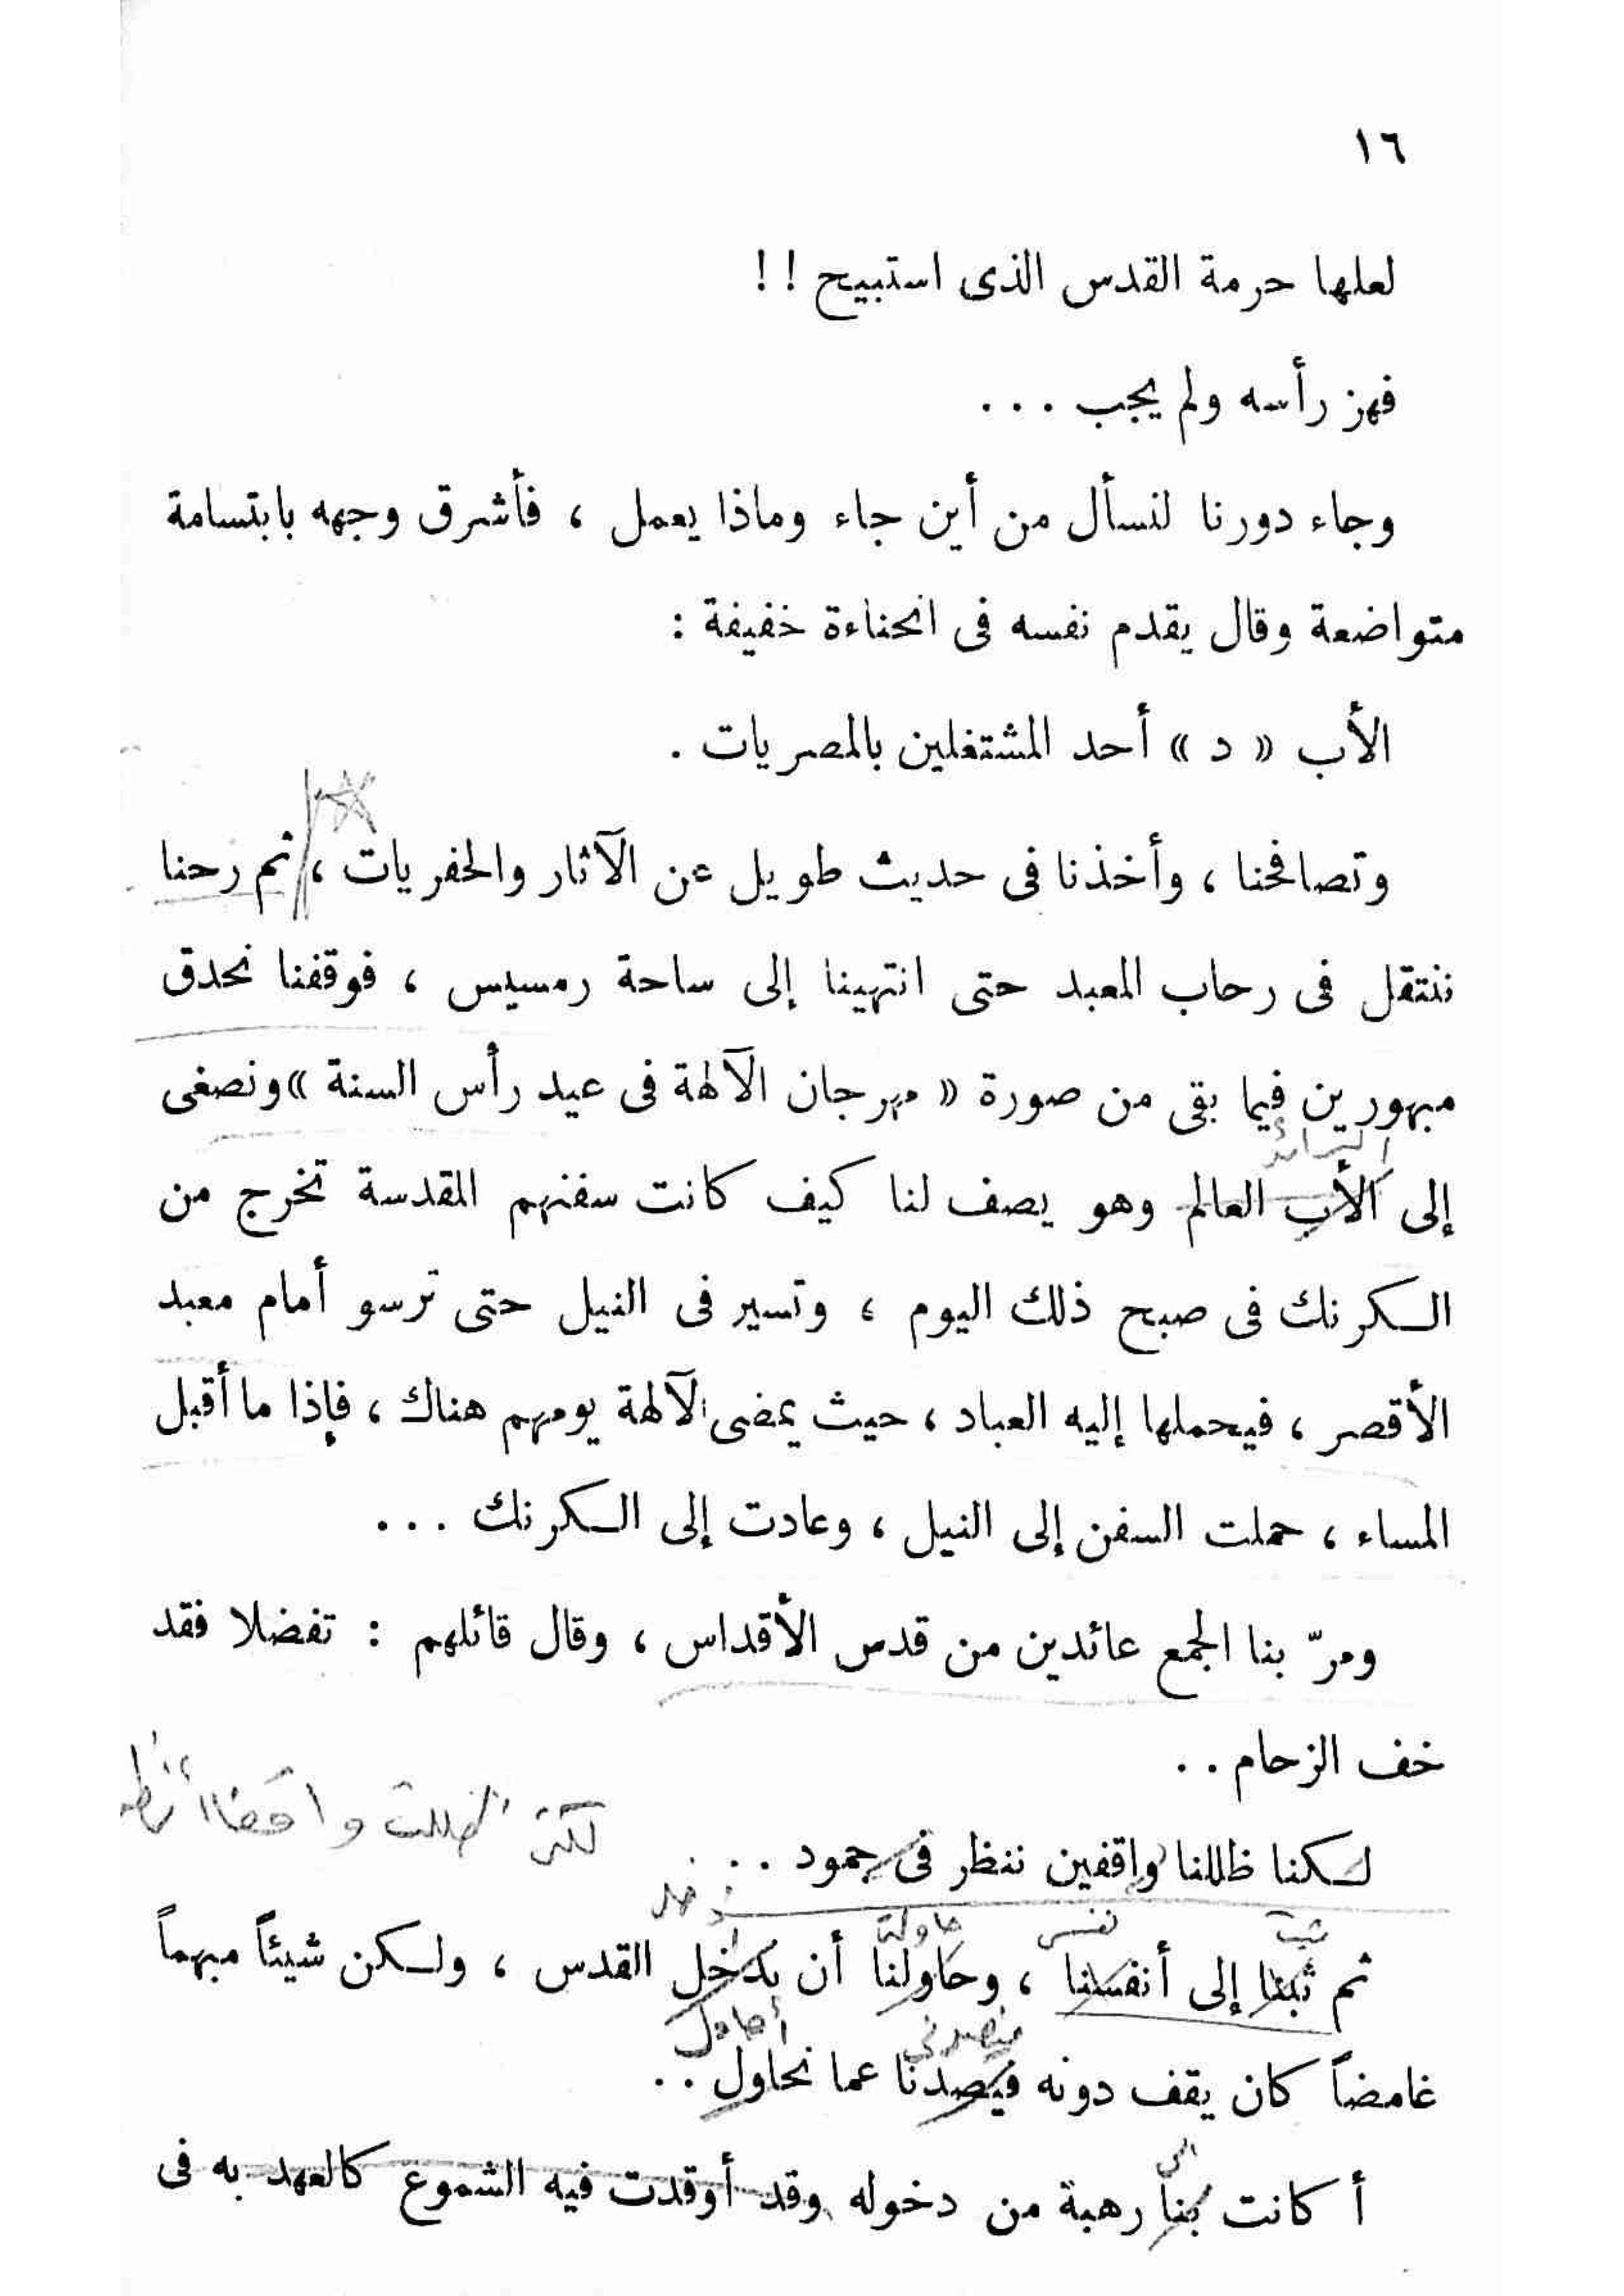 ١٦
لعلها حرمة القدس الذى استبيح !!
فهز رأسه ولم يجب ...
وجاء دورنا لنسأل من أين جاء وماذا يعمل ، فأشرق وجهه بابتسامة
متواضعة وقال يقدم نفسه فى انحناءة خفيفة :
الأب « د » أحد المشتغلين بالمصريات .
وتصافحنا ، وأخذنا فى حديث طويل عن الآثار والحفريات ، ثم رحنا
ننتقل فى رحاب المعبد حتى انتهينا إلى ساحة رمسيس ، فوقفنا نحدق
مبهورين فيما بقى من صورة « مهرجان الآلهة فى عيد رأس السنة » ونصغى
إلى الأب العالم وهو يصف لنا كيف كانت سفنهم المقدسة تخرج من
الكرنك فى صبح ذلك اليوم ، وتسير فى النيل حتى ترسو أمام معبد
الأقصر ، فيحملها إليه العباد ، حيث يمضى الآلهة يومهم هناك ، فإذا ما أقبل
المساء ، حملت السفن إلى النيل ، وعادت إلى الكرنك ...
ومرّ بنا الجمع عائدين من قدس الأقداس ، وقال قائلهم : تفضلا فقد
خف الزحام ..
لكنى ظللت واقفا أنظر
لكنا ظللنا واقفين ننظر فى جمود ...
نفسى حاولت
ثم ثبنا إلى أنفسنا ، وحاولنا أن ندخل القدس ، ولكن شيئاً مبهماً
فيصدنى أحاول
غامضاً كان يقف دونه فيصدنا عما نحاول ..
أكانت بنا رهبة من دخوله وقد أوقدت فيه الشموع كالعهد به فى